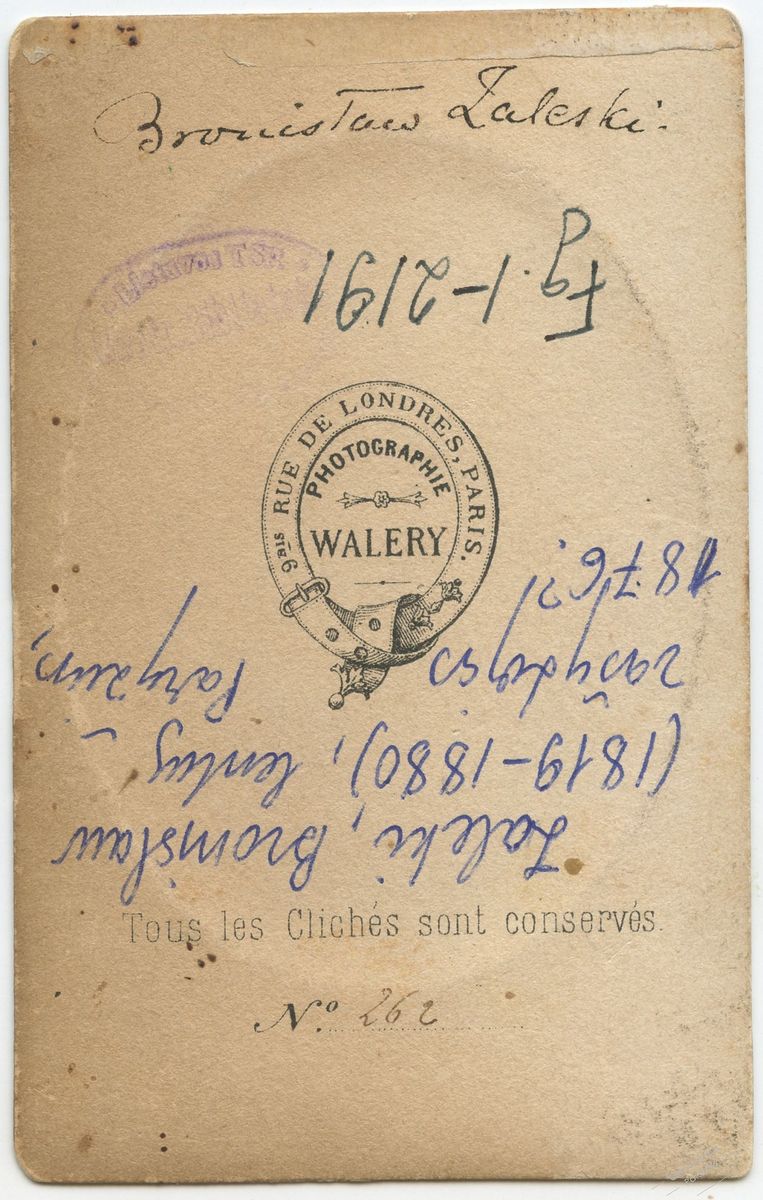 Bronisław Zaleski.
Fg. 1-2191
9BIS RUE DE LONDRES, PARIS.
PHOTOGRAPHIE
WALERY
Zaleki, Bronisław
(1819-1880), lenkų
rašytojas
Paryžius,
1876?
Tous les Clichés sont conservés.
No. 262